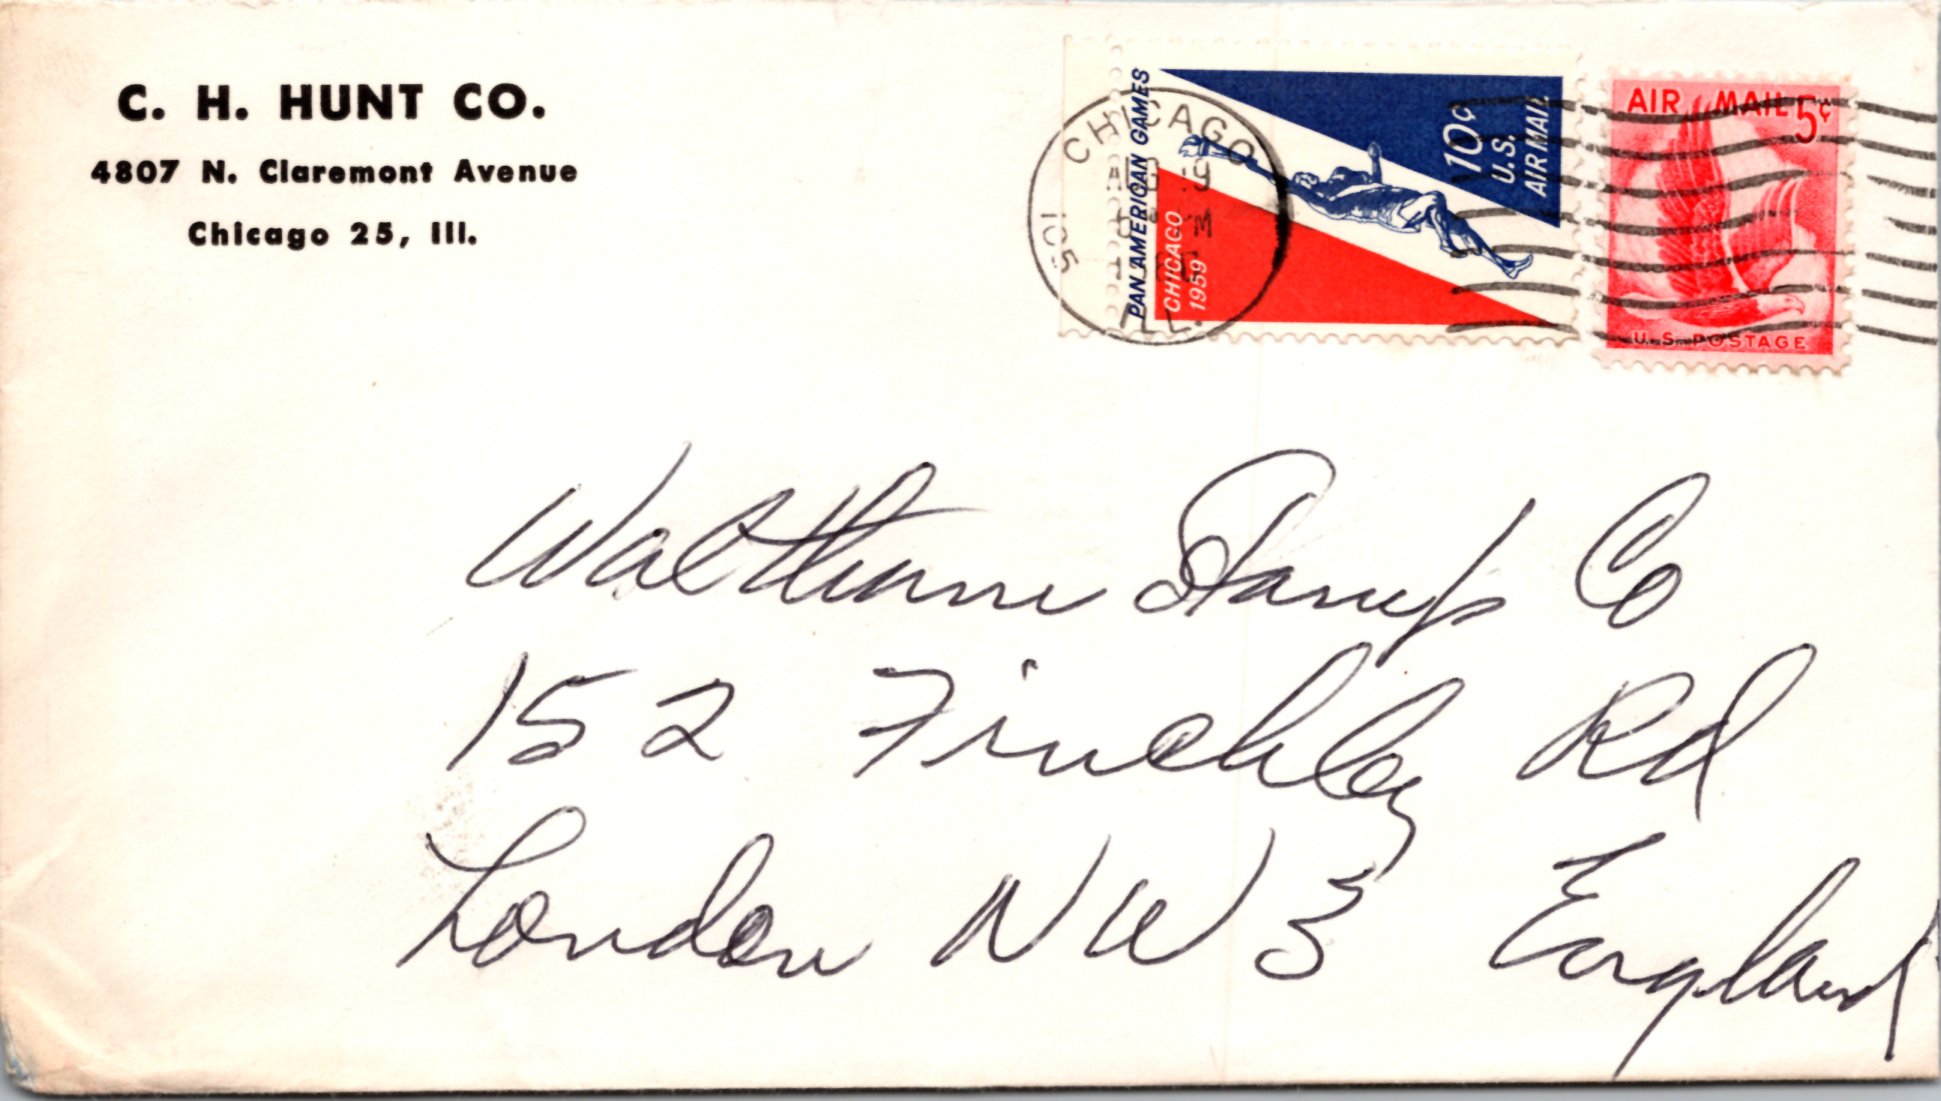 C. H. HUNT CO.
4807 N. Claremont Avenue
Chicago 25, Ill.
CHICAGO
ILL.
PAN AMERICAN GAMES
CHICAGO
1959
10¢
U.S.
AIR MAIL
AIR MAIL 5¢
U.S. POSTAGE
Waltham Stamp Co
152 Finchley Rd
London NW 3 England